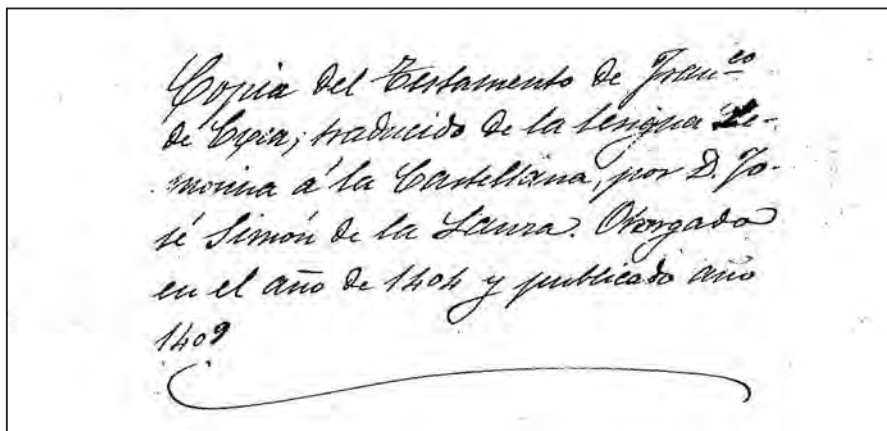 Copia del Testamento de Fran.co
de Espia; traducido de la lengua Le-
mosina á la Castellana, por D. Jo-
sé Simón de la Laura. Otorgado
en el año de 1404 y publicado año
1409